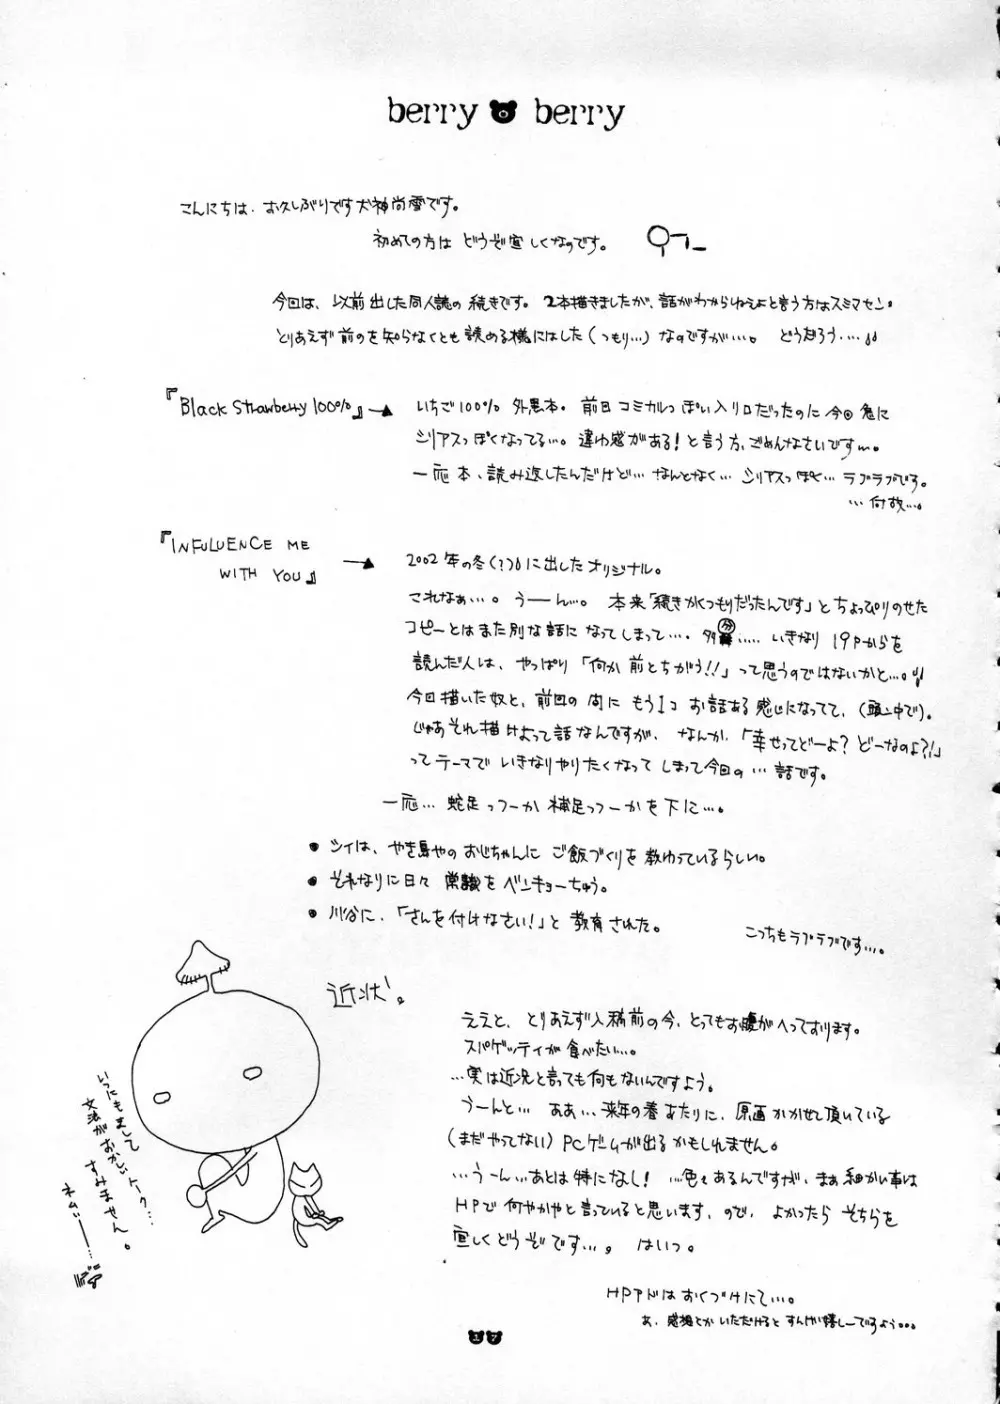 berry berry
こんにちは、お久しぶりです犬神尚雪です。
初めての方は どうぞ宜しくなのです。
今回は、以前出した同人誌の続きです。2本描きましたが、話がわからねえよと言う方はスミマセン。
とりあえず前のを知らなくとも読める様にはした(つもり…)なのですが…。 どうだろう…
『Black Strawberry 100%』→
いちご100% 外黒本。前回コミカルっぽい入り口だったのに今回急に
シリアスっぽくなってるぅ…。違和感がある!と言う方、ごめんなさいですm。
一応本、読み返したんだけど… なんとなく… シリアスっぽく… ラブラブです。
…何故…。
『INFULUENCE ME
WITH YOU』
→
2002年の冬(?)に出したオリジナル。
これなぁ…。うーん…。 本来「続きかくつもりだったんです」とちょっぴりのせた
コピーとはまた別な話になってしまって…。多分…… いきなり19Pからを
読んだ人は、やっぱり「何か前とちがう!!」って思うのではないかと…。
今回描いた奴と、前回の間に もう1コ お話ある感じになってて、(頭ン中で)。
じゃあそれ描けよって話なんですが、なんか、「幸せってどーよ? どーなのよ?!」
ってテーマで いきなりやりたくなって しまって今回の…話です。
一応… 蛇足っつーか 補足っつーかを下に…。
● シィは、やき鳥やのおじちゃんに ご飯づくりを教わっているらしい。
● それなりに日々 常識をベンキョーちゅう。
● 川谷に、「さんを付けなさい!」と 教育された。
こっちもラブラブです…。
近状。
ええと、とりあえず入稿前の今、とってもお腹がへっております。
スパゲッティが食べたい…。
…実は近況と言っても何もないんですよう。
うーんと… ああ… 来年の春あたりに、原画かかせて頂いている
(まだやってない)PCゲームが出るかもしれません。
…うーん…あとは特になし! …色々あるんですが、まぁ細かい事は
HPで何やかやと言っていると思います、ので、よかったら そちらを
宜しくどうぞです…。 はいっ。
HPアドはおくづけにて…。
あ、感想とか いただけると すんげい嬉しーですよう…
いつにもまして
文法がおかしいトーク…
すみません。
ネムいー…
17